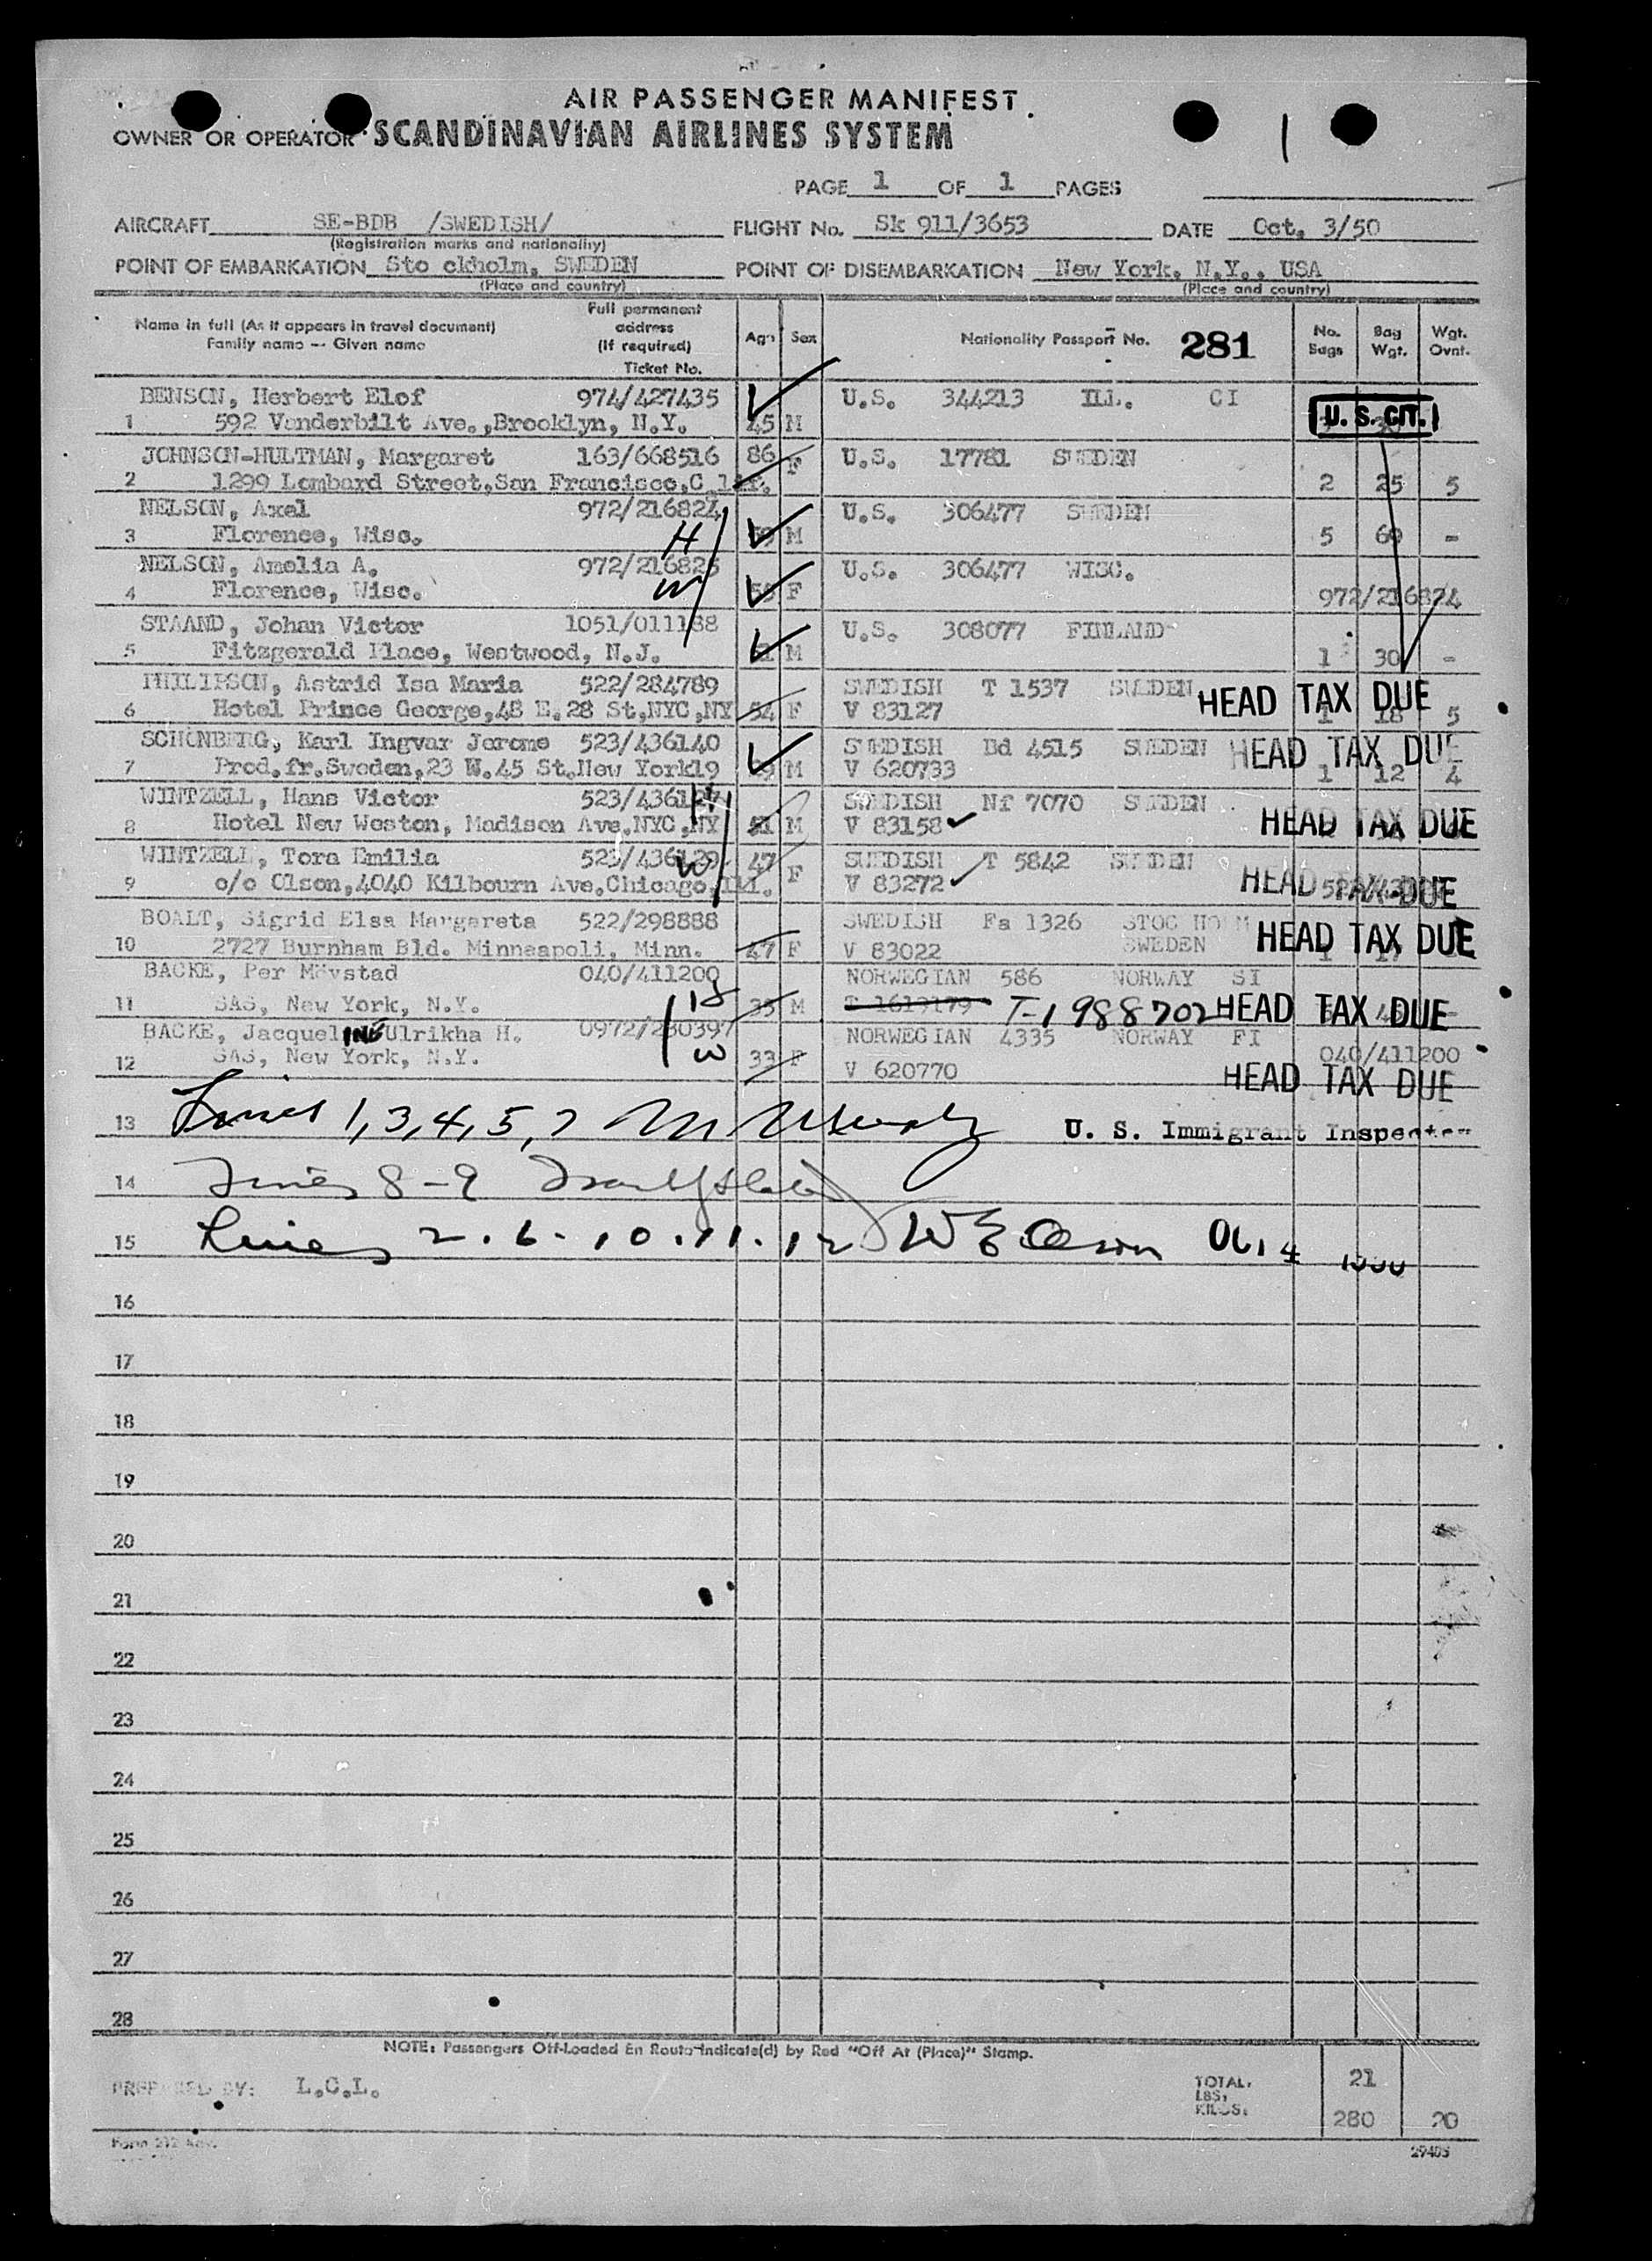 AIR PASSENGER MANIFEST
OWNER OR OPERATOR SCANDINAVIAN AIRLINES SYSTEM
PAGE 1 OF 1 PAGES
AIRCRAFT SE-BDB /SWEDISH/ FLIGHT No. Sk 911/3653 DATE Oct. 3/50
(Registration marks and nationality)
POINT OF EMBARKATION Sto ckholm, SWEDEN POINT OF DISEMBARKATION New York, N.Y., USA
(Place and country) (Place and country)
Name in full (As it appears in travel document) Family name -- Given name Full permanent address (If required) Ticket No. Age Sex Nationality Passport No. 281 No. Bags Bag Wgt. Wgt. Ovnt.
BENSON, Herbert Elof 974/427435 U.S. 344213 ILL. CI
1 592 Vanderbilt Ave.,Brooklyn, N.Y. 45 M U. S. CIT.
JOHNSON-HULTMAN, Margaret 163/668516 86 F U.S. 17781 SWEDEN
2 1299 Lombard Street,San Francisco,C lif. 2 25 5
NELSON, Axel 972/216824 U.S. 306477 SWEDEN
3 Florence, Wisc. H 59 M 5 60 -
NELSON, Amelia A. 972/216825 U.S. 306477 WISC.
4 Florence, Wisc. W F 972/216824
STAAND, Johan Victor 1051/011188 U.S. 308077 FINLAND
5 Fitzgerald Place, Westwood, N.J. M 1 30 -
PHILIPSON, Astrid Isa Maria 522/284789 SWEDISH T 1537 SWEDEN HEAD TAX DUE
6 Hotel Prince George,48 E.28 St,NYC,NY 54 F V 83127 1 18 5
SCHÖNBERG, Karl Ingvar Jerome 523/436140 SWEDISH Bd 4515 SWEDEN HEAD TAX DUE
7 Prod.fr.Sweden,23 W.45 St.New York19 M V 620733 1 12 4
WINTZELL, Hans Victor 523/436127 H SWEDISH Nf 7070 SWEDEN
8 Hotel New Weston, Madison Ave.NYC,NY 51 M V 83158 HEAD TAX DUE
WINTZELL, Tora Emilia 523/436129 W 47 F SWEDISH T 5842 SWEDEN
9 c/o Olson,4040 Kilbourn Ave,Chicago,Ill. V 83272 HEAD TAX DUE
BOALT, Sigrid Elsa Margareta 522/298888 SWEDISH Fa 1326 STOC HOLM
10 2727 Burnham Bld. Minneapoli, Minn. 47 F V 83022 SWEDEN HEAD TAX DUE
BACKE, Per Mövstad 040/411200 NORWEGIAN 586 NORWAY SI
11 SAS, New York, N.Y. H 33 M T 1619179 T-1988702 HEAD TAX DUE
BACKE, JacquelINE Ulrikha H. 0972/230397 NORWEGIAN 4335 NORWAY FI
12 SAS, New York, N.Y. W 33 F V 620770 040/411200
HEAD TAX DUE
13 Lines 1,3,4,5,7 U. S. Immigrant Inspector
14 Lines 8-9
15 Lines 2.6.10.11.12 Oct 4
16
17
18
19
20
21
22
23
24
25
26
27
28
NOTE: Passengers Off-Loaded En Route Indicate(d) by Red "Off At (Place)" Stamp.
PREPARED BY: L.C.L. TOTAL. 21
LBS.
KILOS. 280 20
Form 212 Rev. 29405